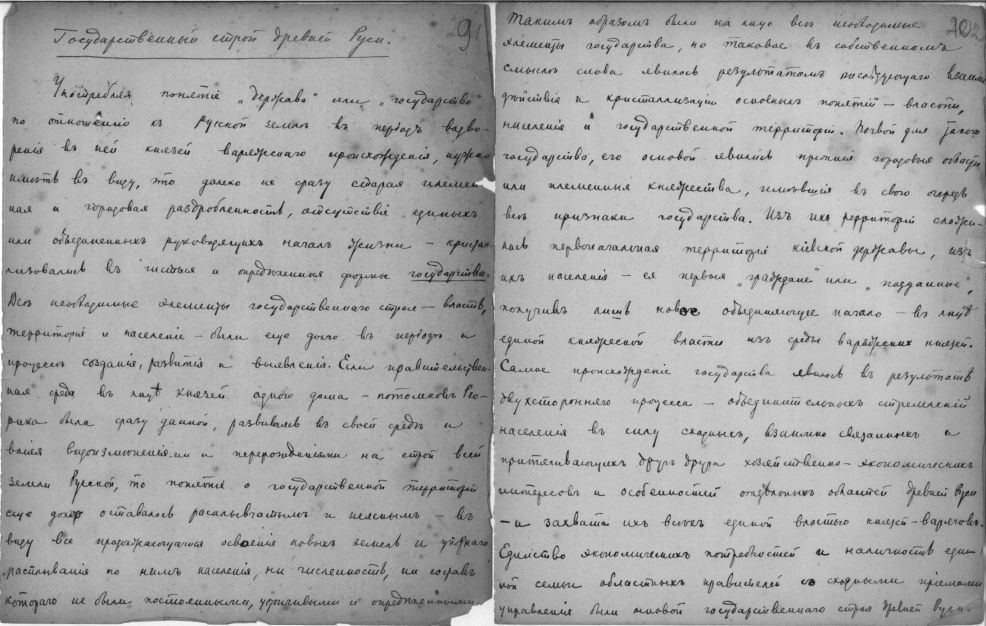 291
Государственный строй древней Руси.
Употребляя понятіе „держава" или „государство"
по отношенію къ Русской землѣ въ періодъ водво-
ренія въ ней князей варяжскаго происхожденія, нужно
имѣть въ виду, что далеко не сразу старая племен-
ная и городовая раздробленность, отсутствіе единыхъ
или объединенныхъ руководящихъ началъ жизни – кристал-
лизовались въ чистыя и опредѣленныя формы государства.
Всѣ необходимые элементы государственнаго строя – власть,
территорія и населеніе – были еще долго въ періодѣ и
процессѣ созданія, развитія и выявленія. Если правительствен-
ная среда въ лицѣ князей одного дома – потомковъ Рю-
рика была сразу данной, развиваясь въ своей средѣ и
вліяя видоизмѣненіями и перерожденіями на строй всей
земли Русской, то понятіе о государственной территоріи
еще долго оставалось расплывчатымъ и неяснымъ – въ
виду все продолжающагося освоенія новыхъ земель и
расплыванія по нимъ населенія, ни численность, ни составъ
котораго не были постоянными, устойчивыми и опредѣленными.
292
Такимъ образомъ были на лицо всѣ необходимые
элементы государства, но таковое въ собственномъ
смыслѣ слова явилось результатомъ послѣдующаго взаимо-
дѣйствія и кристаллизаціи основныхъ понятій – власти,
населенія и государственной территоріи. Почвой для такого
государства, его основой явились прежнія городовыя области
или племенныя княжества, имѣвшія въ свою очередь
всѣ признаки государства. Изъ ихъ территорій сложи-
лась первоначальная территорія кіевской державы, изъ
ихъ населенія – ея первые „граждане" или „подданные",
получивъ лишь новое объединяющее начало – въ лицѣ
единой княжеской власти изъ среды варяжскихъ князей.
Самое происхожденіе государства явилось въ результатѣ
двухсторонняго процесса – объединительныхъ стремленій
населенія въ силу сходныхъ, взаимно связанныхъ и
притягивающихъ другъ друга хозяйственно-экономическихъ
интересовъ и особенностей отдѣльныхъ областей древней Руси
– и захвата ихъ всѣхъ единой властью князей-варяговъ.
Единство экономическихъ потребностей и наличность еди-
ной семьи областныхъ правителей со сходными пріемами
управленія были основой государственнаго строя древней Руси.